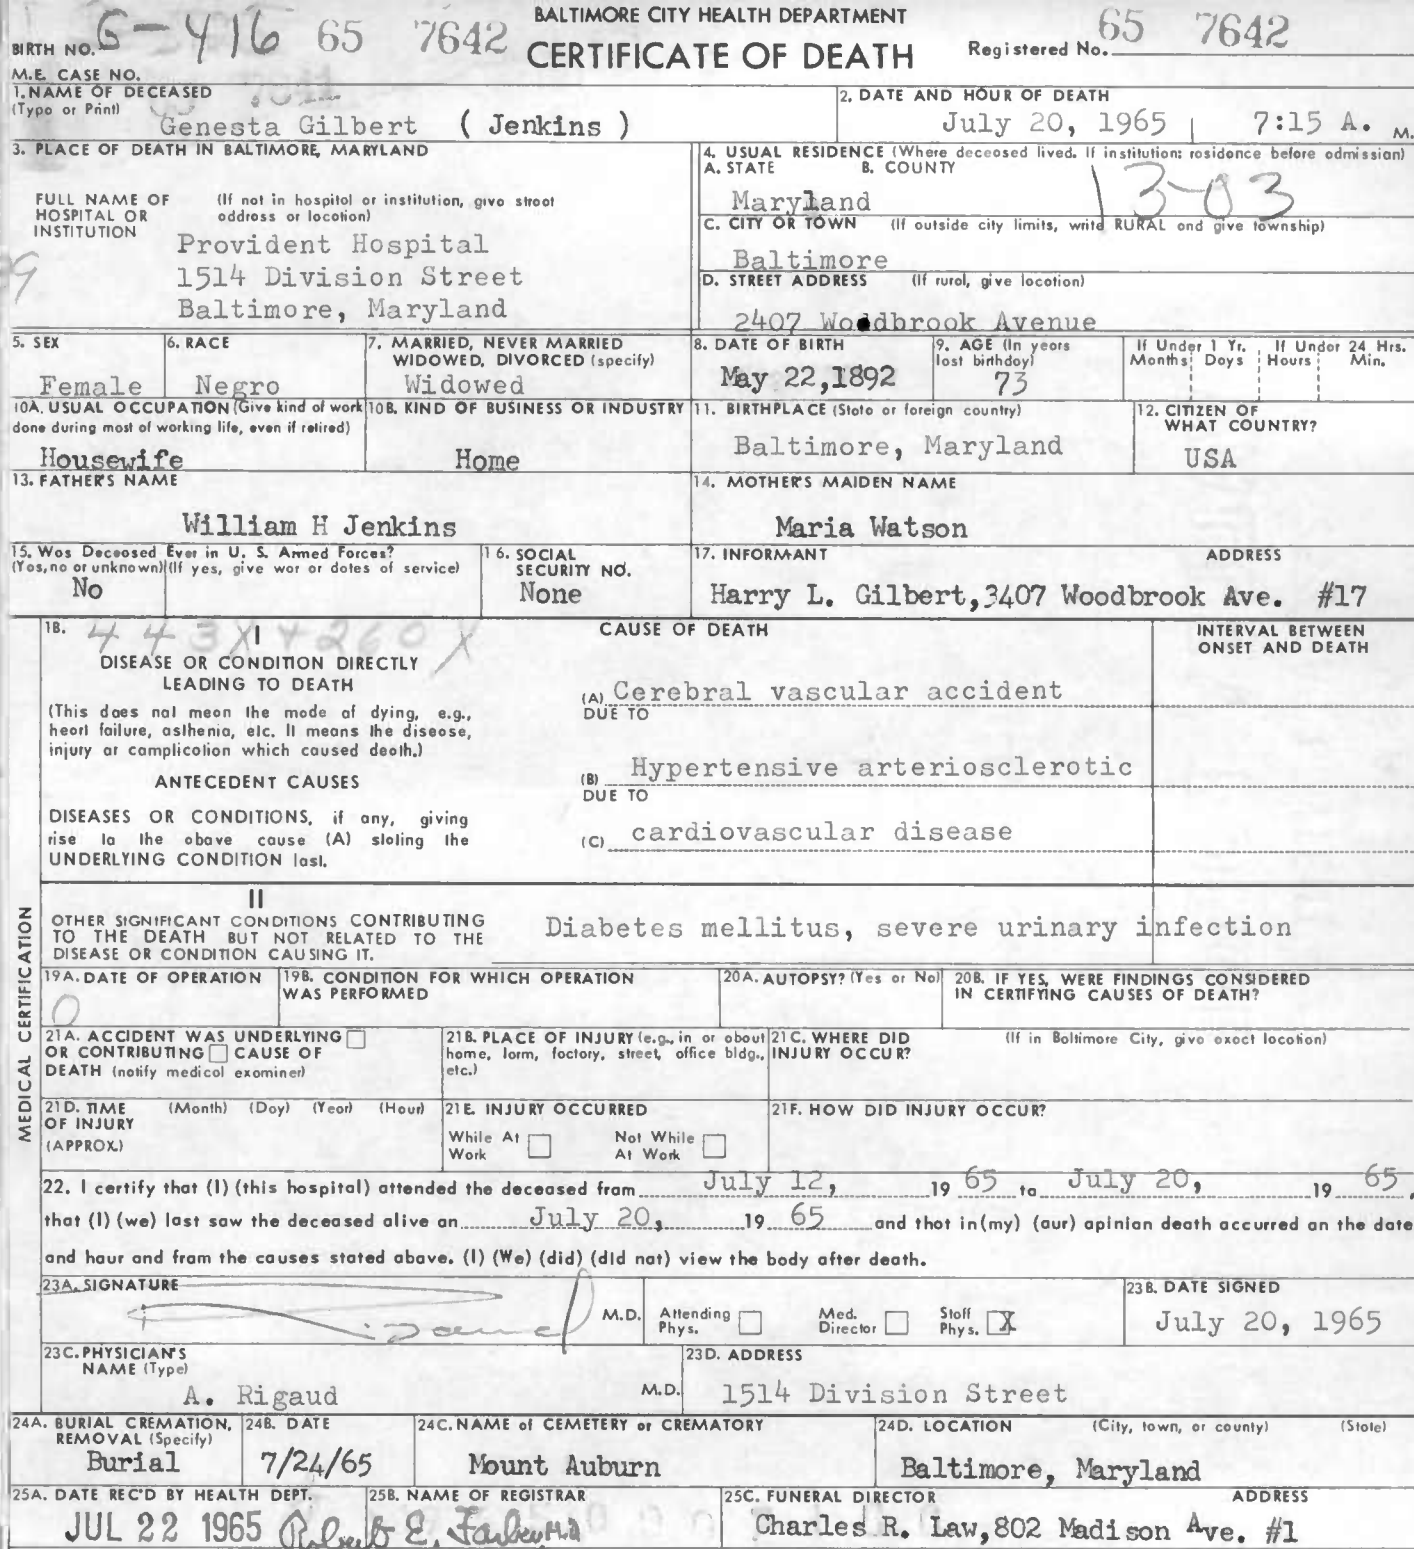 BALTIMORE CITY HEALTH DEPARTMENT
CERTIFICATE OF DEATH
BIRTH NO. G-416 65 7642
Registered No. 65 7642
M.E. CASE NO.
1. NAME OF DECEASED
(Type or Print)
Genesta Gilbert ( Jenkins )
2. DATE AND HOUR OF DEATH
July 20, 1965 | 7:15 A. M.
3. PLACE OF DEATH IN BALTIMORE, MARYLAND
FULL NAME OF HOSPITAL OR INSTITUTION
(If not in hospital or institution, give street address or location)
Provident Hospital
1514 Division Street
Baltimore, Maryland
4. USUAL RESIDENCE (Where deceased lived. If institution: residence before admission)
A. STATE B. COUNTY
Maryland 13-03
C. CITY OR TOWN (If outside city limits, write RURAL and give township)
Baltimore
D. STREET ADDRESS (If rural, give location)
2407 Woodbrook Avenue
5. SEX
Female
6. RACE
Negro
7. MARRIED, NEVER MARRIED
WIDOWED, DIVORCED (specify)
Widowed
8. DATE OF BIRTH
May 22,1892
9. AGE (In years
last birthday)
73
If Under 1 Yr.
Months Days
If Under 24 Hrs.
Hours Min.
10A. USUAL OCCUPATION (Give kind of work
done during most of working life, even if retired)
Housewife
10B. KIND OF BUSINESS OR INDUSTRY
Home
11. BIRTHPLACE (State or foreign country)
Baltimore, Maryland
12. CITIZEN OF
WHAT COUNTRY?
USA
13. FATHER'S NAME
William H Jenkins
14. MOTHER'S MAIDEN NAME
Maria Watson
15. Was Deceased Ever in U. S. Armed Forces?
(Yes, no or unknown) (If yes, give war or dates of service)
No
16. SOCIAL
SECURITY NO.
None
17. INFORMANT ADDRESS
Harry L. Gilbert,3407 Woodbrook Ave. #17
18. 443X + 260X
I
DISEASE OR CONDITION DIRECTLY
LEADING TO DEATH
(This does not mean the mode of dying, e.g.,
heart failure, asthenia, etc. It means the disease,
injury or complication which caused death.)
ANTECEDENT CAUSES
DISEASES OR CONDITIONS, if any, giving
rise to the above cause (A) stating the
UNDERLYING CONDITION last.
CAUSE OF DEATH
INTERVAL BETWEEN
ONSET AND DEATH
(A) Cerebral vascular accident
DUE TO
(B) Hypertensive arteriosclerotic
DUE TO
(C) cardiovascular disease
MEDICAL CERTIFICATION
II
OTHER SIGNIFICANT CONDITIONS CONTRIBUTING
TO THE DEATH BUT NOT RELATED TO THE
DISEASE OR CONDITION CAUSING IT.
Diabetes mellitus, severe urinary infection
19A. DATE OF OPERATION
0
19B. CONDITION FOR WHICH OPERATION
WAS PERFORMED
20A. AUTOPSY? (Yes or No)
20B. IF YES, WERE FINDINGS CONSIDERED
IN CERTIFYING CAUSES OF DEATH?
21A. ACCIDENT WAS UNDERLYING
OR CONTRIBUTING CAUSE OF
DEATH (notify medical examiner)
21B. PLACE OF INJURY (e.g., in or about
home, farm, factory, street, office bldg.,
etc.)
21C. WHERE DID
INJURY OCCUR?
(If in Baltimore City, give exact location)
21D. TIME (Month) (Day) (Year) (Hour)
OF INJURY
(APPROX.)
21E. INJURY OCCURRED
While At
Work
Not While
At Work
21F. HOW DID INJURY OCCUR?
22. I certify that (I) (this hospital) attended the deceased from July 12, 19 65 to July 20, 19 65,
that (I) (we) last saw the deceased alive on July 20, 19 65 and that in (my) (our) opinion death occurred on the date
and hour and from the causes stated above. (I) (We) (did) (did not) view the body after death.
23A. SIGNATURE
M.D.
Attending
Phys.
Med.
Director
Staff
Phys. X
23B. DATE SIGNED
July 20, 1965
23C. PHYSICIAN'S
NAME (Type)
A. Rigaud M.D.
23D. ADDRESS
1514 Division Street
24A. BURIAL CREMATION,
REMOVAL (Specify)
Burial
24B. DATE
7/24/65
24C. NAME of CEMETERY or CREMATORY
Mount Auburn
24D. LOCATION (City, town, or county) (State)
Baltimore, Maryland
25A. DATE REC'D BY HEALTH DEPT.
JUL 22 1965
25B. NAME OF REGISTRAR
Robert E. Farber M.D.
25C. FUNERAL DIRECTOR ADDRESS
Charles R. Law,802 Madison Ave. #1